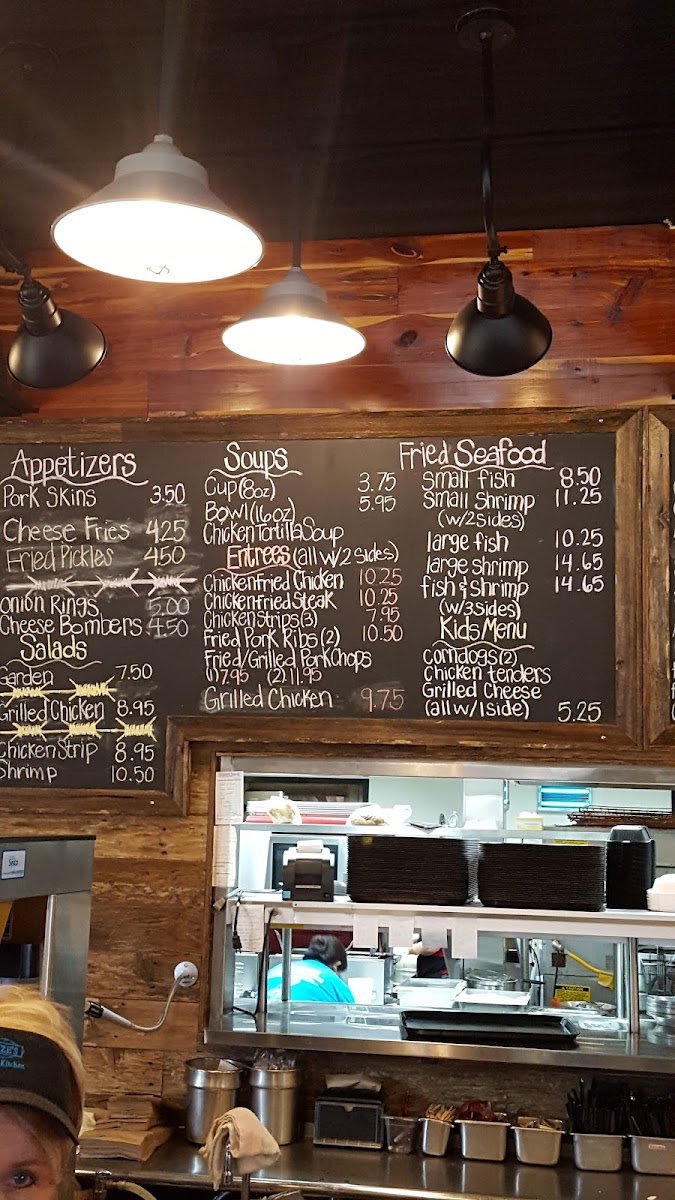 Appetizers
Pork Skins 3.50
Cheese Fries 4.25
Fried Pickles 4.50
onion Rings 5.00
Cheese Bombers 4.50
Salads
Garden 7.50
Grilled Chicken 8.95
Chicken Strip 8.95
Shrimp 10.50
Soups
Cup (8oz) 3.75
Bowl (16oz) 5.95
Chicken Tortilla Soup
Entrees (all w/2 Sides)
Chicken Fried Chicken 10.25
Chicken Fried Steak 10.25
Chicken Strips (3) 7.95
Fried Pork Ribs (2) 10.50
Fried/Grilled Pork Chops
(1) 7.95 (2) 11.95
Grilled Chicken 9.75
Fried Seafood
Small fish 8.50
Small Shrimp 11.25
(w/2 sides)
large fish 10.25
large shrimp 14.65
fish & shrimp 14.65
(w/3 sides)
Kids Menu
corndogs (2)
Chicken tenders
Grilled Cheese
(all w/1 side) 5.25
Kitchen